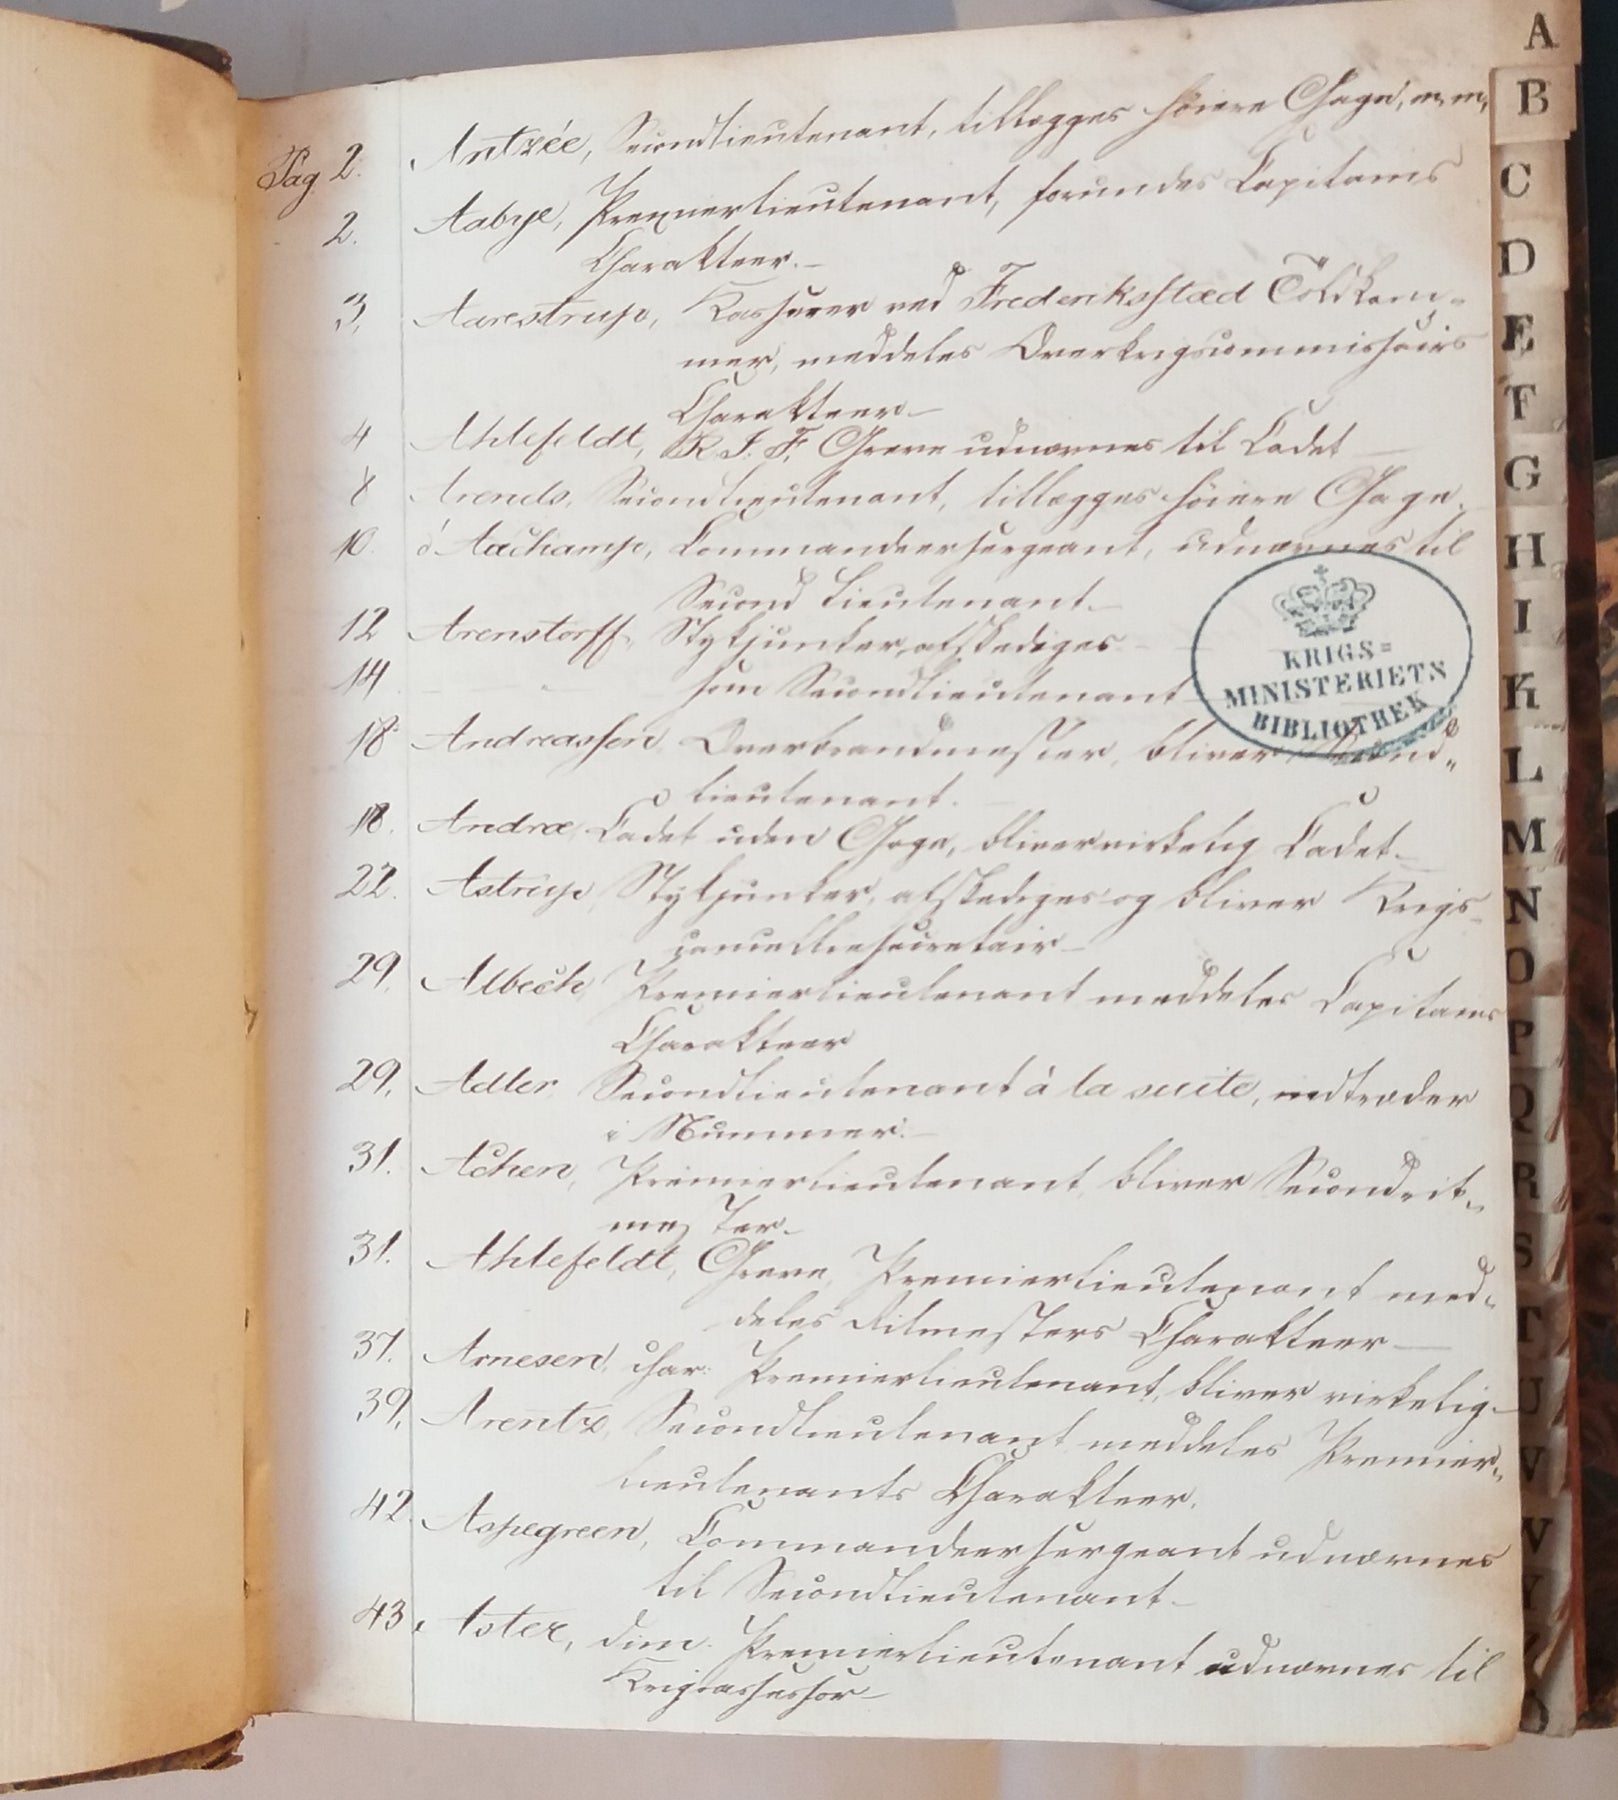 Pag. 2. Antzée, Secondlieutenant, tillægges höiere Gage, m, m,
2. Aabye, Premierlieutenant, forundes Capitains
Charakteer.
3, Aarestrup, Kasserer ved Frederikstæd Toldkam-
mer, meddeles Overkrigscommissairs
Charakteer
4 Ahlefeldt, Greve udnævnes til Cadet
8 Arends, Secondlieutenant, tillægges höiere Gage.
10. Commandeersergeant, udnævnes til
Second Lieutenant
12 Arenstorff, Stykjunker, afskediges
14 som Secondlieutenant
18 Andreassen, Overbrandmester, bliver Second-
lieutenant.
18. Andræ, Cadet uden Gage, bliver virkelig Cadet
22. Astrup, Stykjunker, afskediges og bliver Krigs-
cancelliesecretair
29, Albech, Premierlieutenant meddeles Capitains
Charakteer
29, Adler, Secondlieutenant à la suite, indtræder
i Nummer.
31. Achen, Premierlieutenant, bliver Secondrit-
mester
31. Ahlefeldt, Greve, Premierlieutenant med-
deles Ritmesters Charakteer
37. Arnesen, char: Premierlieutenant, bliver virkelig
39, Arentz, Secondlieutenant meddeles Premier-
lieutenants Charakteer.
42. Aspegreen, Commandeersergeant udnævnes
til Secondlieutenant
43, Aster, dim. Premierlieutenant udnævnes til
Krigsassessor
KRIGS=
MINISTERIETS
BIBLIOTHEK
A
B
C
D
E
F
G
H
I
K
L
M
N
O
P
Q
R
S
T
U
V
W
Y
Z
Ø